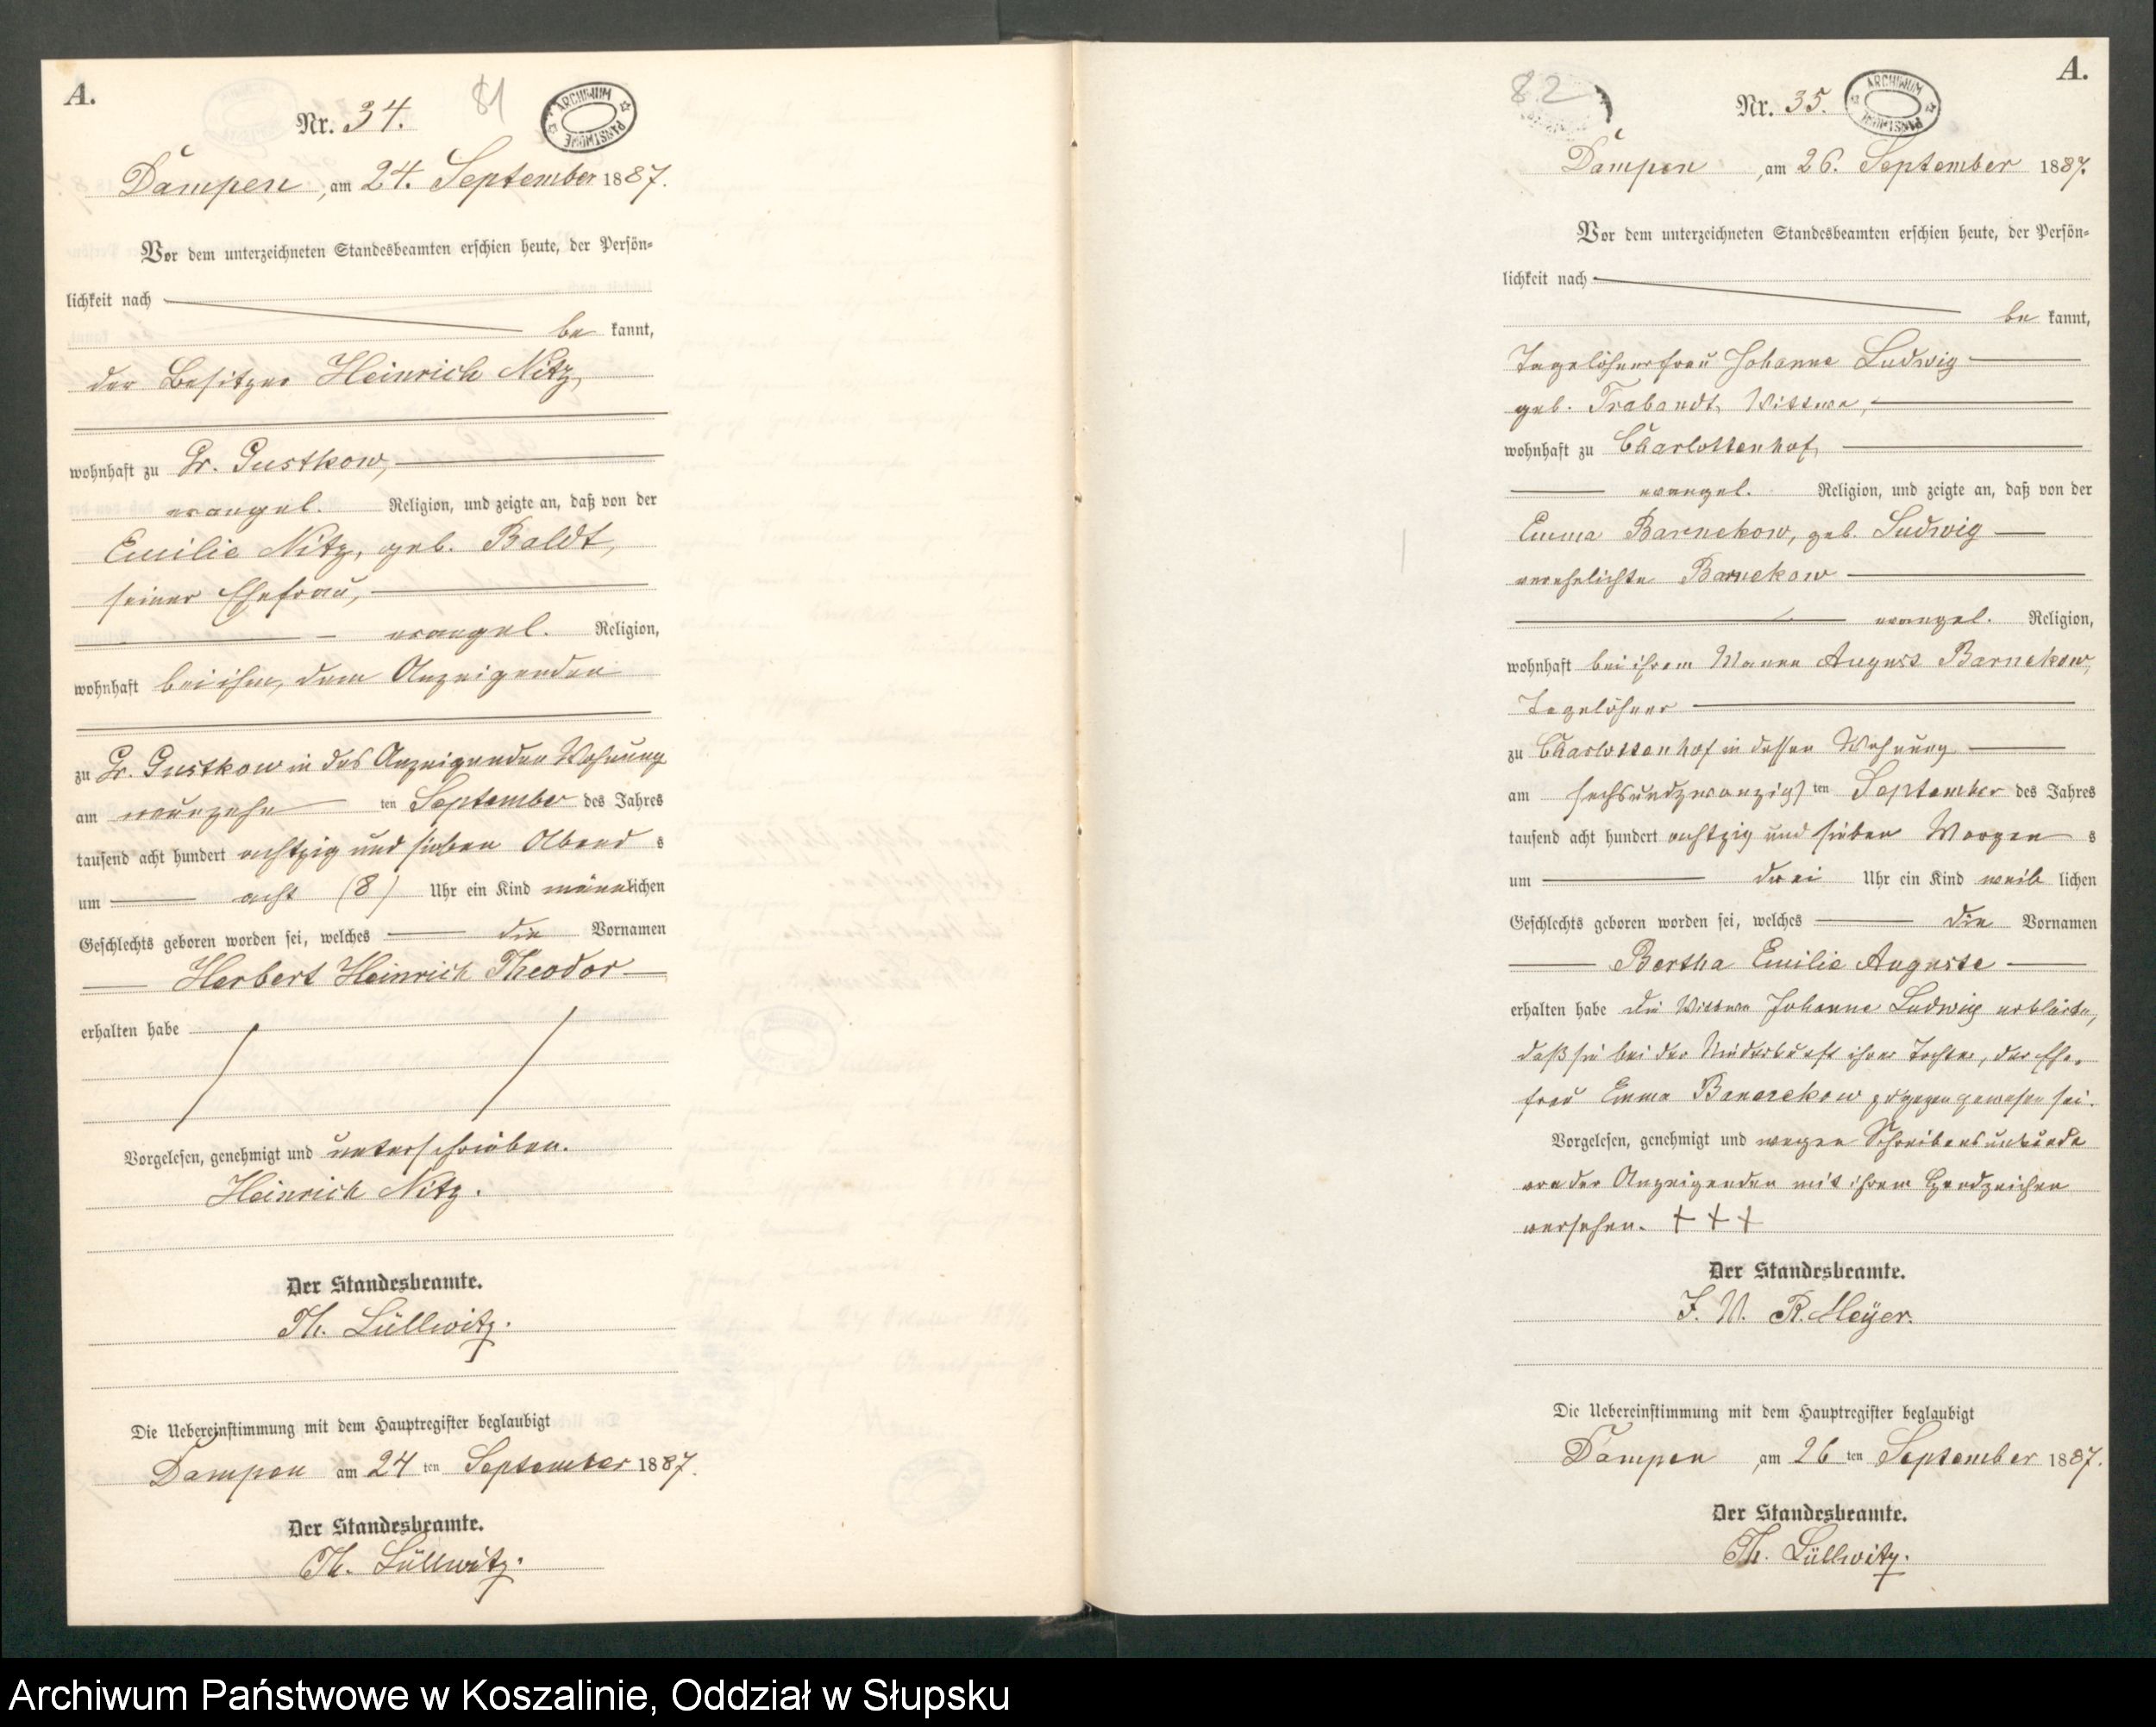 A.
81
ARCHIWUM PAŃSTWOWE
Nr. 34.
Dampen, am 24. September 1887.
Vor dem unterzeichneten Standesbeamten erschien heute, der Persön-
lichkeit nach
be kannt,
der Besitzer Heinrich Nitz,
wohnhaft zu Gr. Gustkow,
evangel. Religion, und zeigte an, daß von der
Emilie Nitz, geb. Baldt,
seiner Ehefrau,
evangel. Religion,
wohnhaft bei ihm, dem Anzeigenden
zu Gr. Gustkow in des Anzeigenden Wohnung
am neunzehn ten September des Jahres
tausend acht hundert achtzig und sieben Abend s
um acht (8) Uhr ein Kind männlichen
Geschlechts geboren worden sei, welches die Vornamen
Herbert Heinrich Theodor
erhalten habe
Vorgelesen, genehmigt und unterschrieben.
Heinrich Nitz.
Der Standesbeamte.
Th. Lüllwitz.
Die Uebereinstimmung mit dem Hauptregister beglaubigt
Dampen am 24 ten September 1887.
Der Standesbeamte.
Th. Lüllwitz.
A.
82
ARCHIWUM PAŃSTWOWE
Nr. 35.
Dampen, am 26. September 1887.
Vor dem unterzeichneten Standesbeamten erschien heute, der Persön-
lichkeit nach
be kannt,
Tagelöhnerfrau Johanne Ludwig
geb. Trabandt, Wittwe,
wohnhaft zu Charlottenhof,
evangel. Religion, und zeigte an, daß von der
Emma Barnekow, geb. Ludwig
verehelichte Barnekow
evangel. Religion,
wohnhaft bei ihrem Manne August Barnekow,
Tagelöhner
zu Charlottenhof in dessen Wohnung
am sechsundzwanzigsten September des Jahres
tausend acht hundert achtzig und sieben Morgen s
um drei Uhr ein Kind weib lichen
Geschlechts geboren worden sei, welches die Vornamen
Bertha Emilie Auguste
erhalten habe die Wittwe Johanne Ludwig erklärte,
daß sie bei der Niederkunft ihrer Tochter, der Ehe-
frau Emma Banezekow zugegen gewesen sei.
Vorgelesen, genehmigt und wegen Schreibensunkunde
von der Anzeigenden mit ihrem Handzeichen
versehen. + + +
Der Standesbeamte.
J. V. R. Meÿer.
Die Uebereinstimmung mit dem Hauptregister beglaubigt
Dampen, am 26 ten September 1887.
Der Standesbeamte.
Th. Lüllwitz.
Archiwum Państwowe w Koszalinie, Oddział w Słupsku